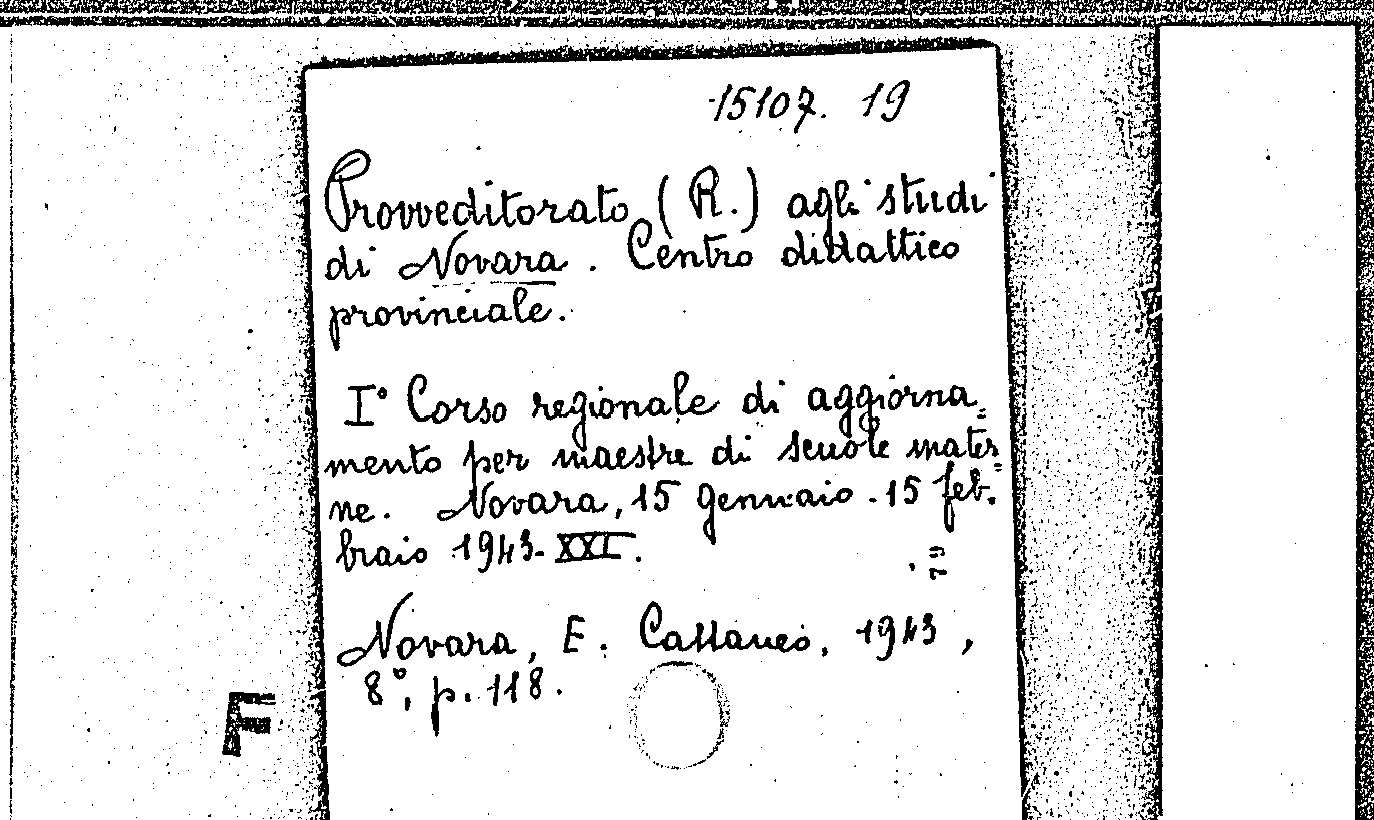 15107. 19
Provveditorato (R.) agli studi
di Novara. Centro didattico
provinciale.
I° Corso regionale di aggiorna=
mento per maestre di scuole mater=
ne. Novara, 15 gennaio - 15 feb=
braio 1943-XXI.
Novara, E. Cattaneo, 1943,
8°, p. 118.
F